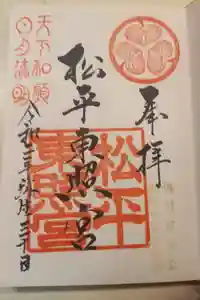 奉拝
松平東照宮
松平
東照宮
天下和順
日月清明
令和三年
三十日